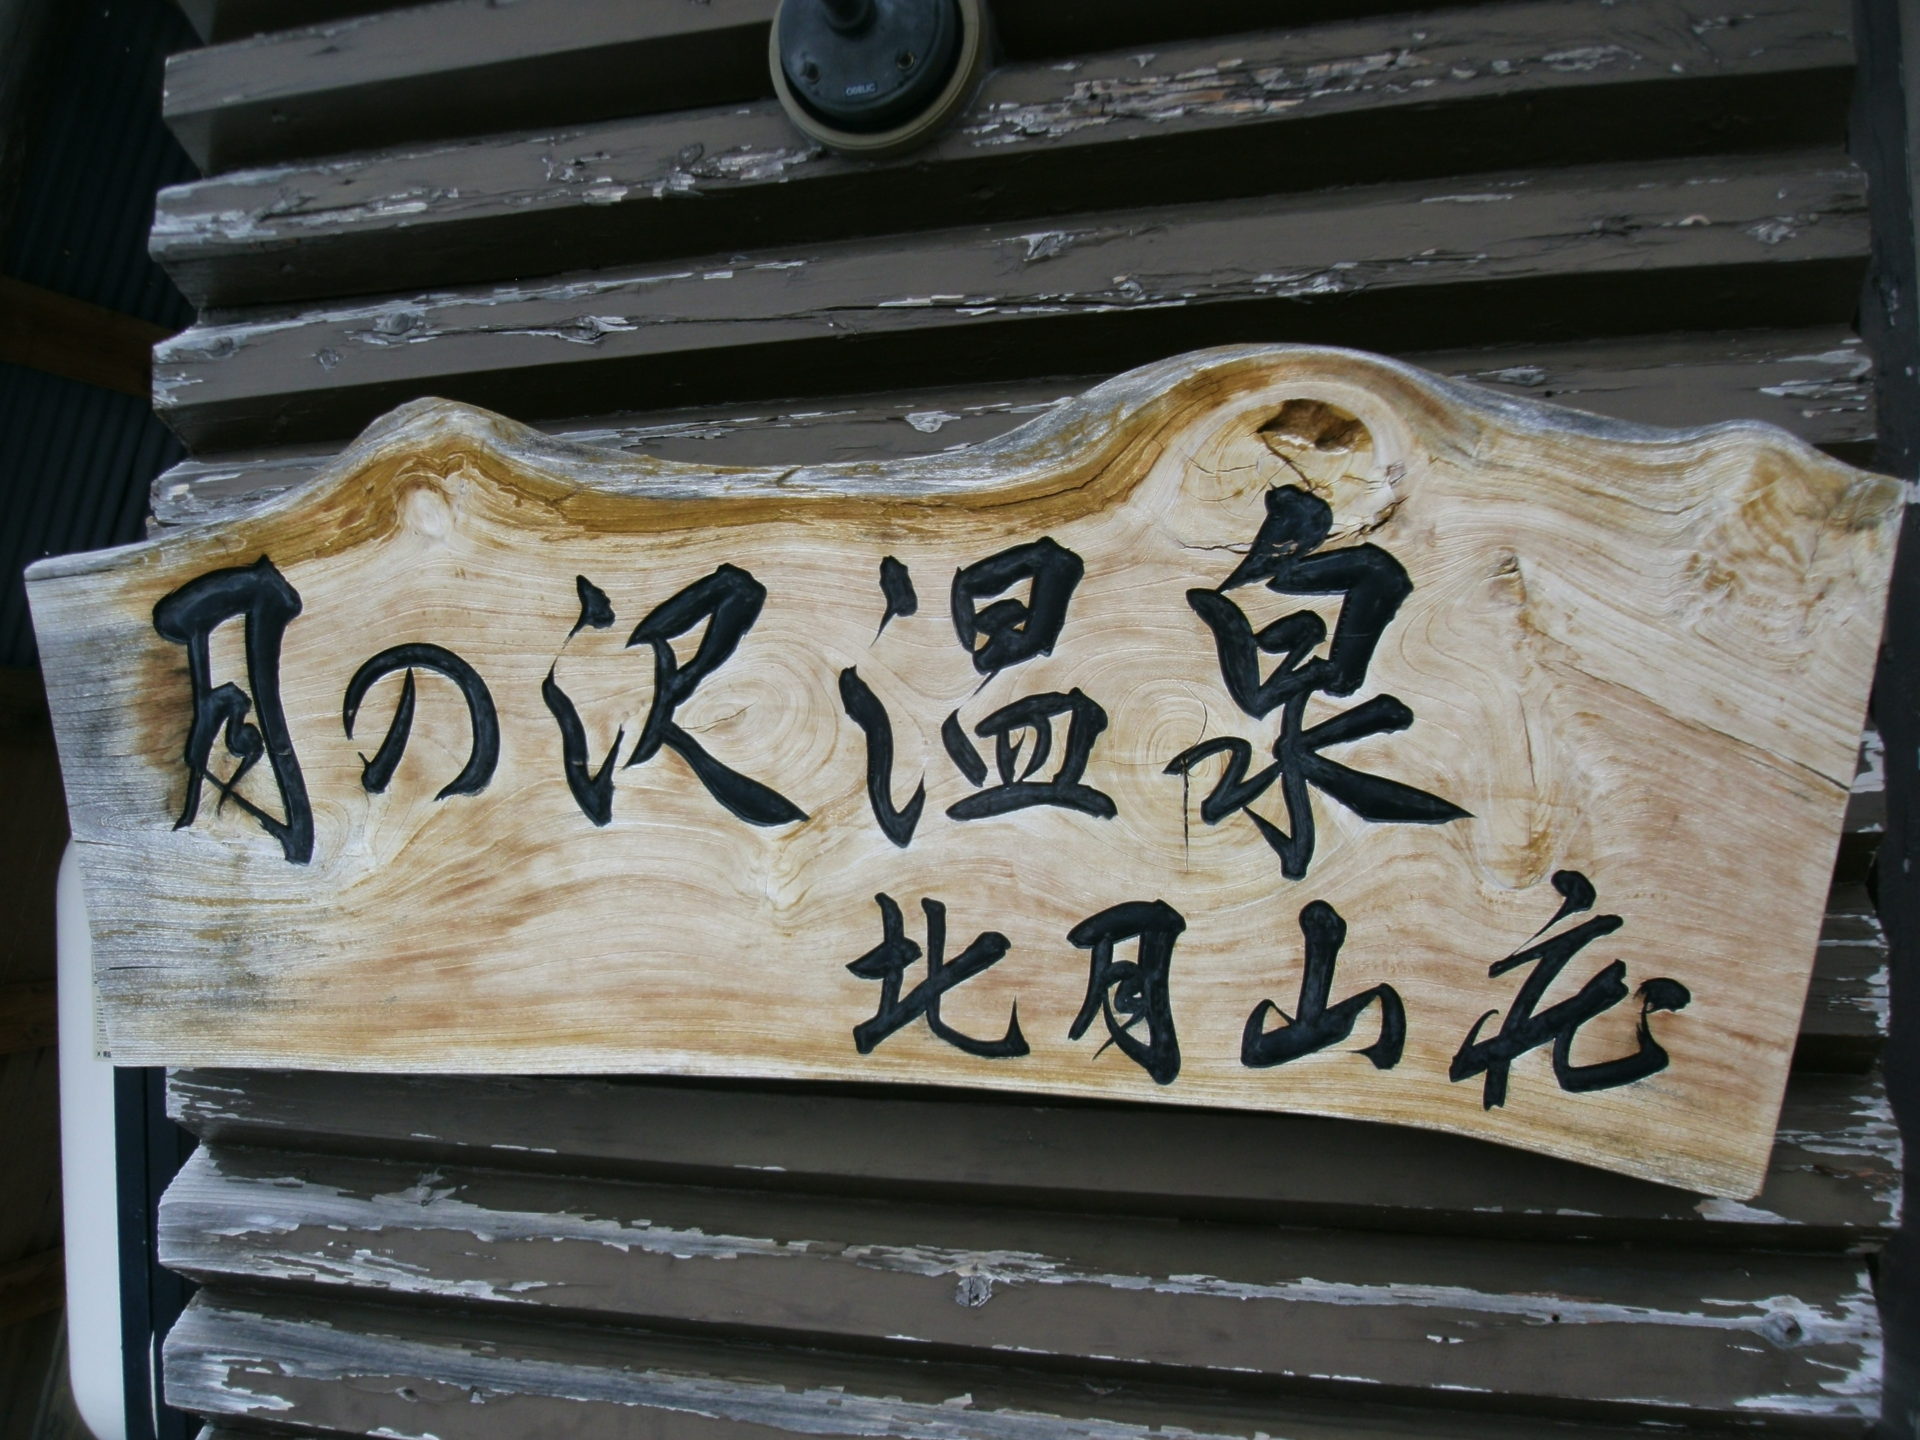 ODELIC
月の沢温泉
北月山荘